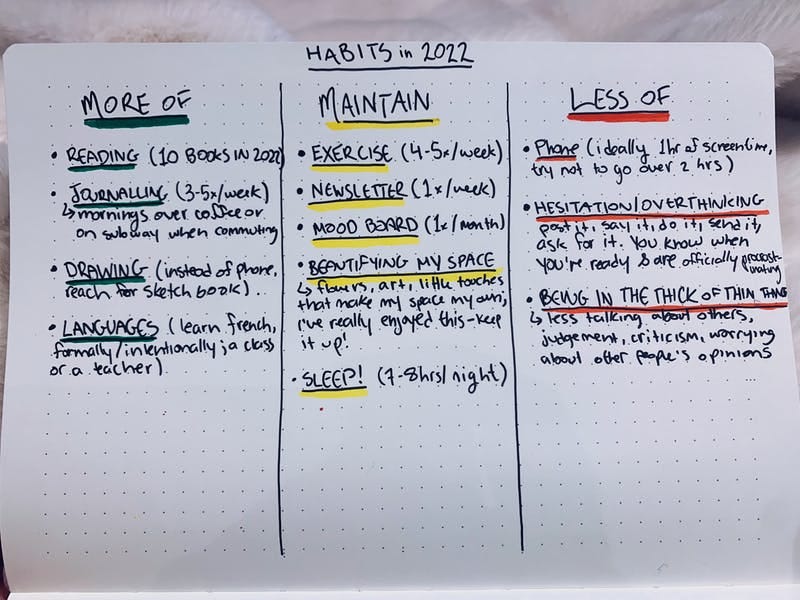 HABITS in 2022
MORE OF
• READING (10 BOOKS IN 2022)
• JOURNALLING (3-5x/week)
↳ mornings over coffee or
on subway when commuting
• DRAWING (instead of phone,
reach for sketch book).
• LANGUAGES (learn french,
formally/intentionally; a class
or a teacher).
MAINTAIN
• EXERCISE (4-5x/week)
• NEWSLETTER (1x/week)
• MOOD BOARD (1x/month)
• BEAUTIFYING MY SPACE
↳ flowers, art, little touches
that make my space my own,
i've really enjoyed this - keep
it up!
• SLEEP! (7-8hrs/night)
LESS OF
• Phone (ideally 1hr of screentime,
try not to go over 2 hrs)
• HESITATION/OVERTHINKING
post it, say it, do it, send it,
ask for it. You know when
you're ready & are officially procrast-
inating
• BEING IN THE THICK OF THIN THINGS
↳ less talking about others,
judgement, criticism, worrying
about other people's opinions